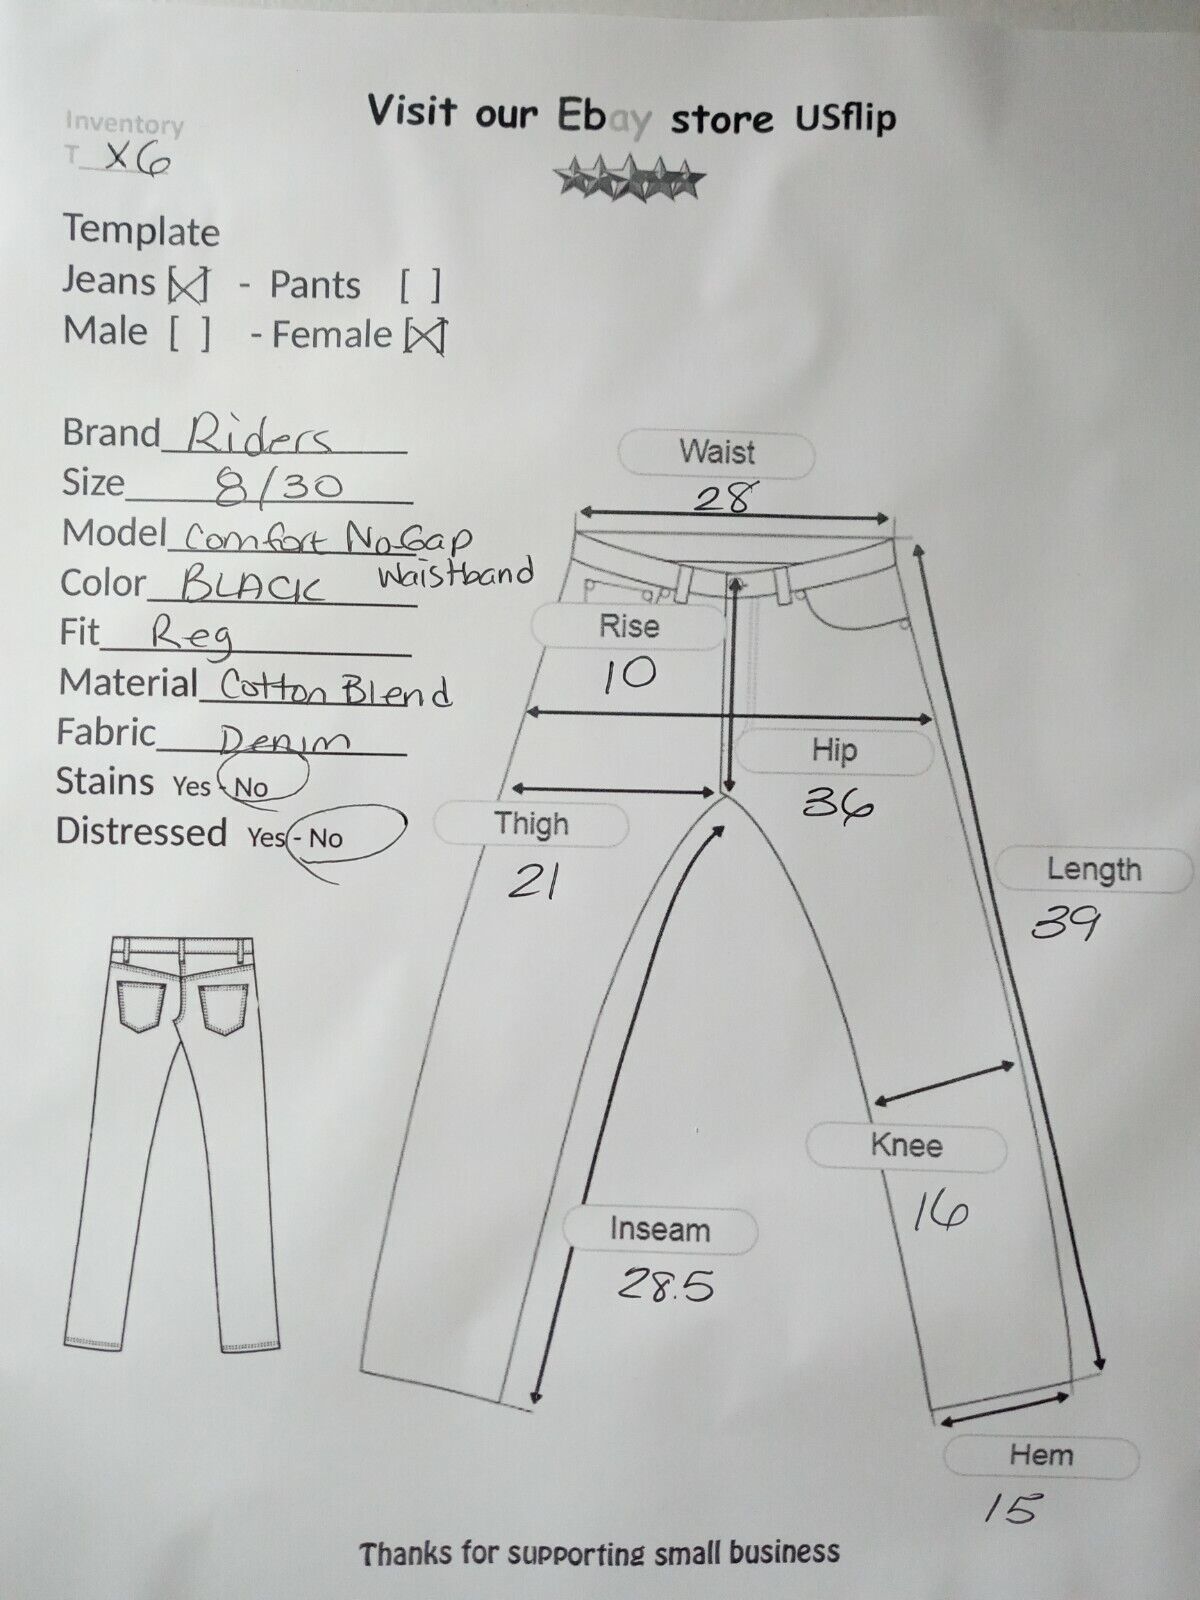 Visit our Ebay store USflip
Inventory
T__X6
Template
Jeans [X] - Pants [ ]
Male [ ] - Female [X]
Brand Riders
Size 8/30
Model Comfort No-Gap
Waistband
Color BLACK
Fit Reg
Material Cotton Blend
Fabric Denim
Stains Yes - No
Distressed Yes - No
Waist
28
Rise
10
Hip
36
Thigh
21
Length
39
Knee
16
Inseam
28.5
Hem
15
Thanks for supporting small business